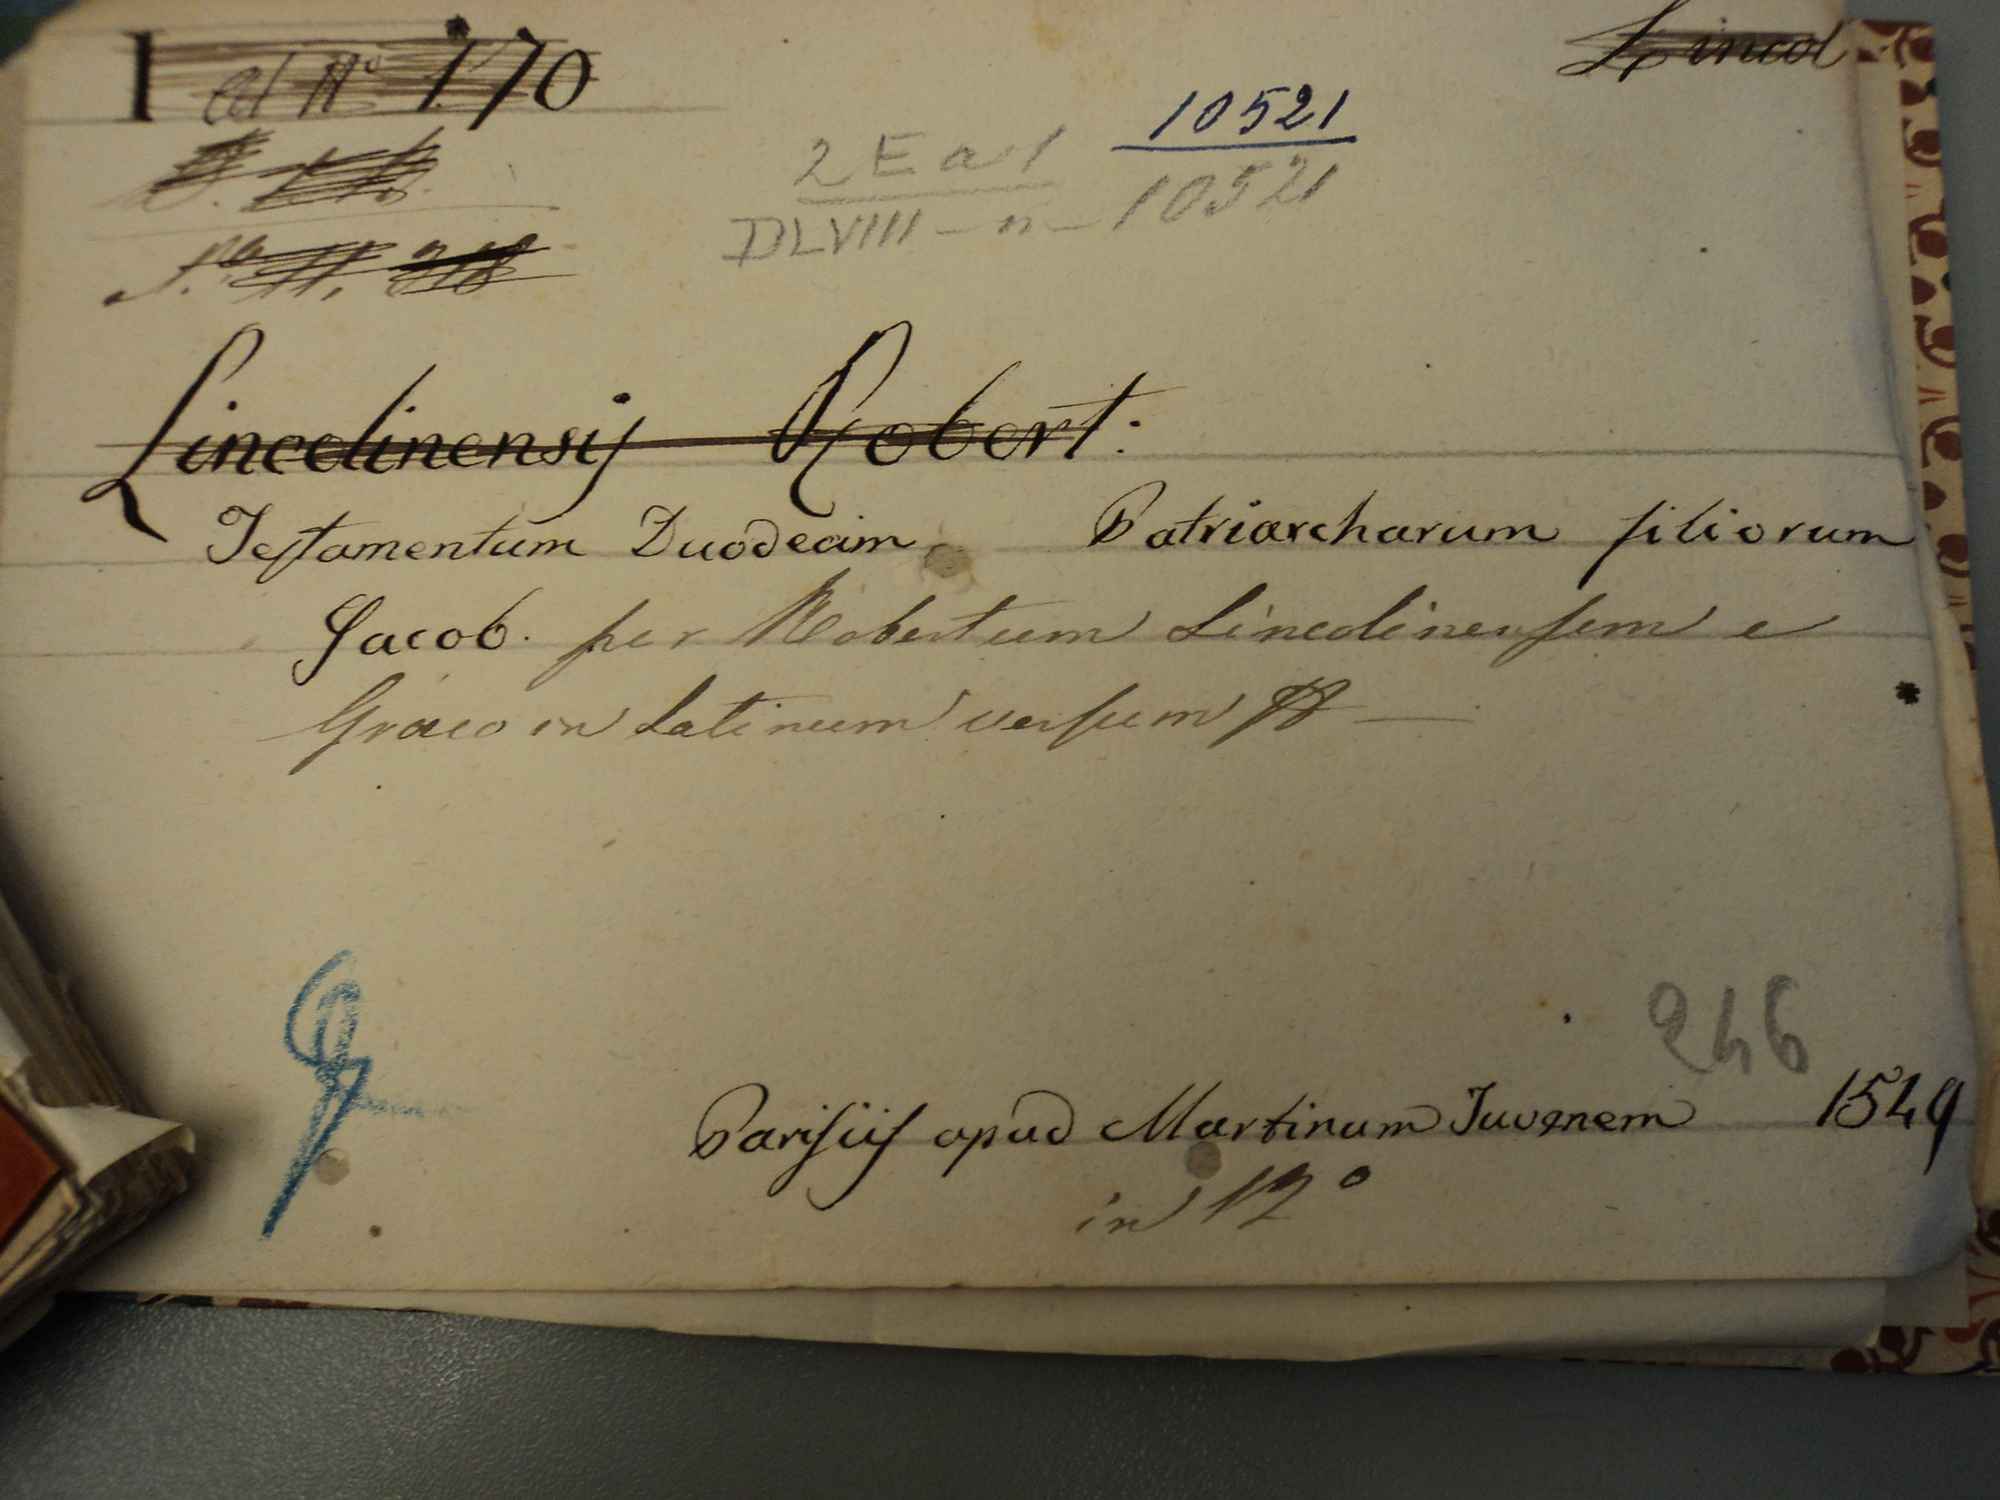 1 ad No 170
Lincol
10521
2 E a 1
DLVIII - n - 10521
Lincolinensij Robert:
Testamentum Duodecim Patriarcharum filiorum
Jacob. per Robertum Lincolinensem e
Græco in Latinum versum
246
Parisiis apud Martinum Juvenem 1549
in 12°